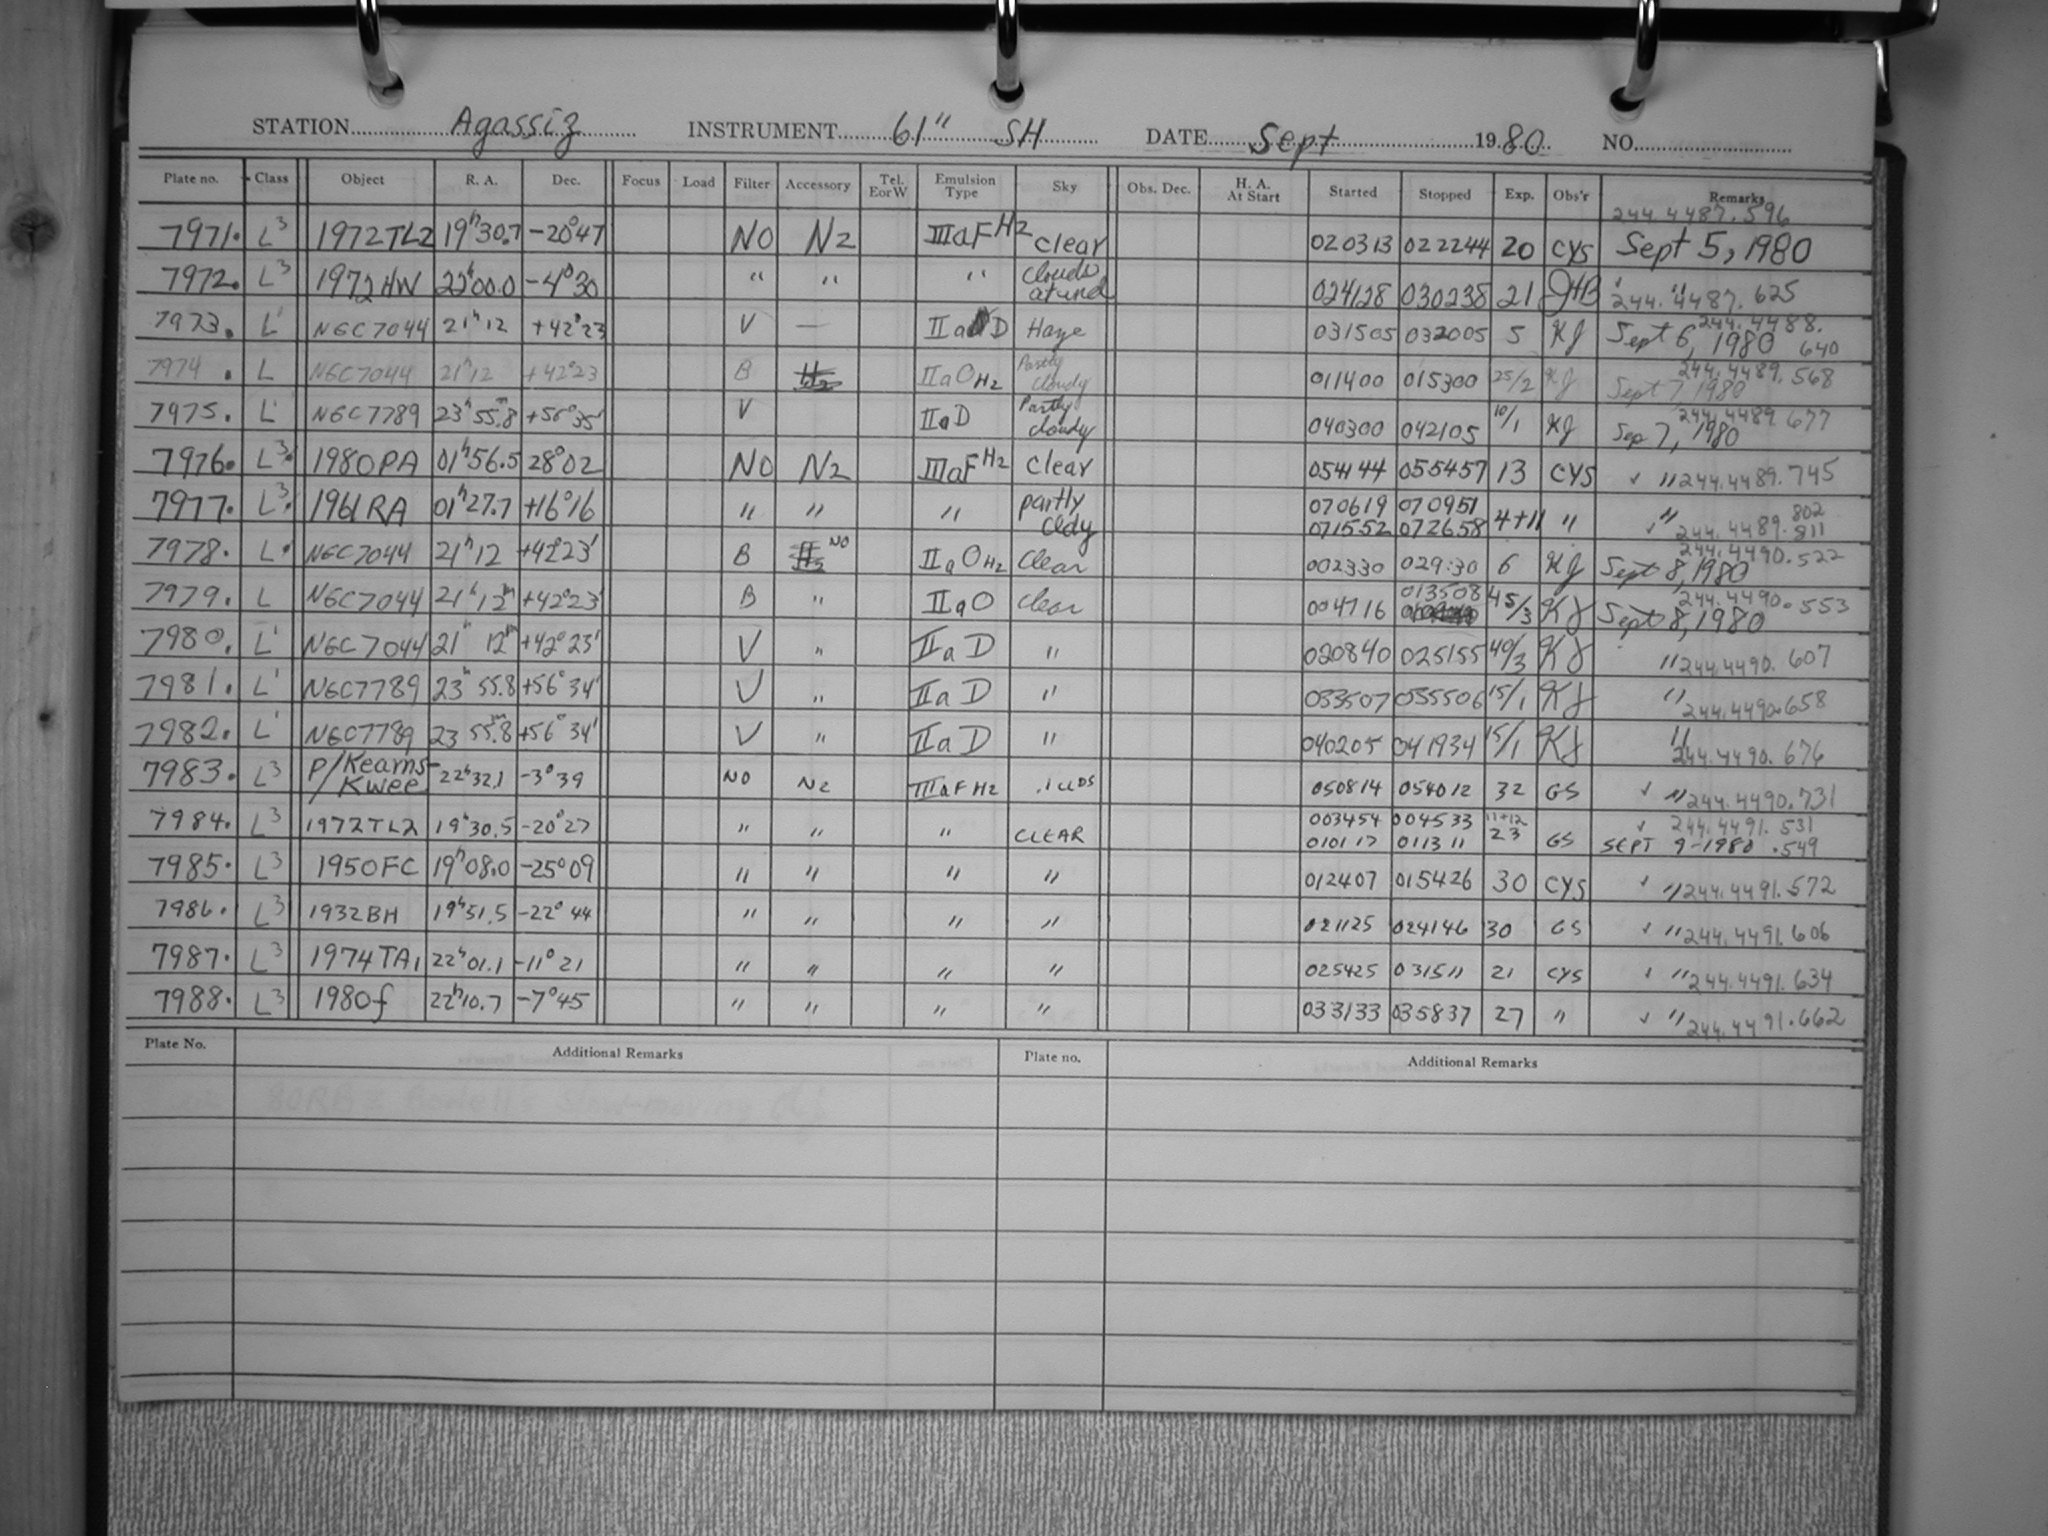 STATION Agassiz INSTRUMENT 61" SH DATE Sept 1980 NO.
Plate no. Class Object R. A. Dec. Focus Load Filter Accessory Tel. EorW Emulsion Type Sky Obs. Dec. H. A. At Start Started Stopped Exp. Obs'r Remarks
244.4487.596
7971. L3 1972TL2 19h30.7 -20°47 NO N2 IIIaFH2 clear 020313 022244 20 CYS Sept 5, 1980
7972. L3 1972HW 22h00.0 -4°30 " " " clouds atund 024128 030238 21 JHB " 244.4487.625
7973. L' NGC7044 21h12 +42°23 V — IIaD Haze 031505 032005 5 KJ Sept 6, 1980 244.4488.640
7974. L NGC7044 21h12 +42°23 B IIaOH2 Partly cloudy 011400 015300 25/2 KJ Sept 7, 1980 244.4489.568
7975. L' NGC7789 23h55.m8 +56°35' V IIaD Partly cloudy 040300 042105 10/1 KJ Sep 7, 1980 244.4489.677
7976. L3 1980PA 01h56.5 28°02 NO N2 IIIaFH2 clear 054144 055457 13 CYS ✓ " 244.4489.745
7977. L3 1961RA 01h27.7 +16°16 " " " partly cldy 070619 070951 4+11 " " 802
071552 072658 ✓ 244.4489.811
7978. L NGC7044 21h12 +42°23' B NO IIaOH2 Clear 002330 029:30 6 KJ Sept 8, 1980 244.4490.522
7979. L NGC7044 21h12m +42°23' B " IIaO clear 004716 013508 45/3 KJ Sept 8, 1980 244.4490.553
7980. L' NGC7044 21h 12m +42°23' V " IIaD " 020840 025155 40/3 KJ " 244.4490.607
7981. L' NGC7789 23h 55.8 +56°34' V " IIaD " 033507 035506 15/1 KJ " 244.4490.658
7982. L' NGC7789 23 55.m8 +56°34' V " IIaD " 040205 041934 15/1 KJ " 244.4490.676
7983. L3 P/Kearns-Kwee 22h32.1 -3°39 NO N2 IIIaFH2 .1 CLDS 050814 054012 32 GS ✓ " 244.4490.731
7984. L3 1972TL2 19h30.5 -20°27 " " " CLEAR 003454 004533 11+12 ✓ 244.4491.531
010117 011311 23 GS SEPT 9-1980 .549
7985. L3 1950FC 19h08.0 -25°09 " " " " 012407 015426 30 CYS ✓ " 244.4491.572
7986. L3 1932BH 19h51.5 -22°44 " " " " 021125 024146 30 GS ✓ " 244.4491.606
7987. L3 1974TA1 22h01.1 -11°21 " " " " 025425 031511 21 CYS ✓ " 244.4491.634
7988. L3 1980f 22h10.7 -7°45 " " " " 033133 035837 27 " ✓ " 244.4491.662
Plate No. Additional Remarks Plate no. Additional Remarks